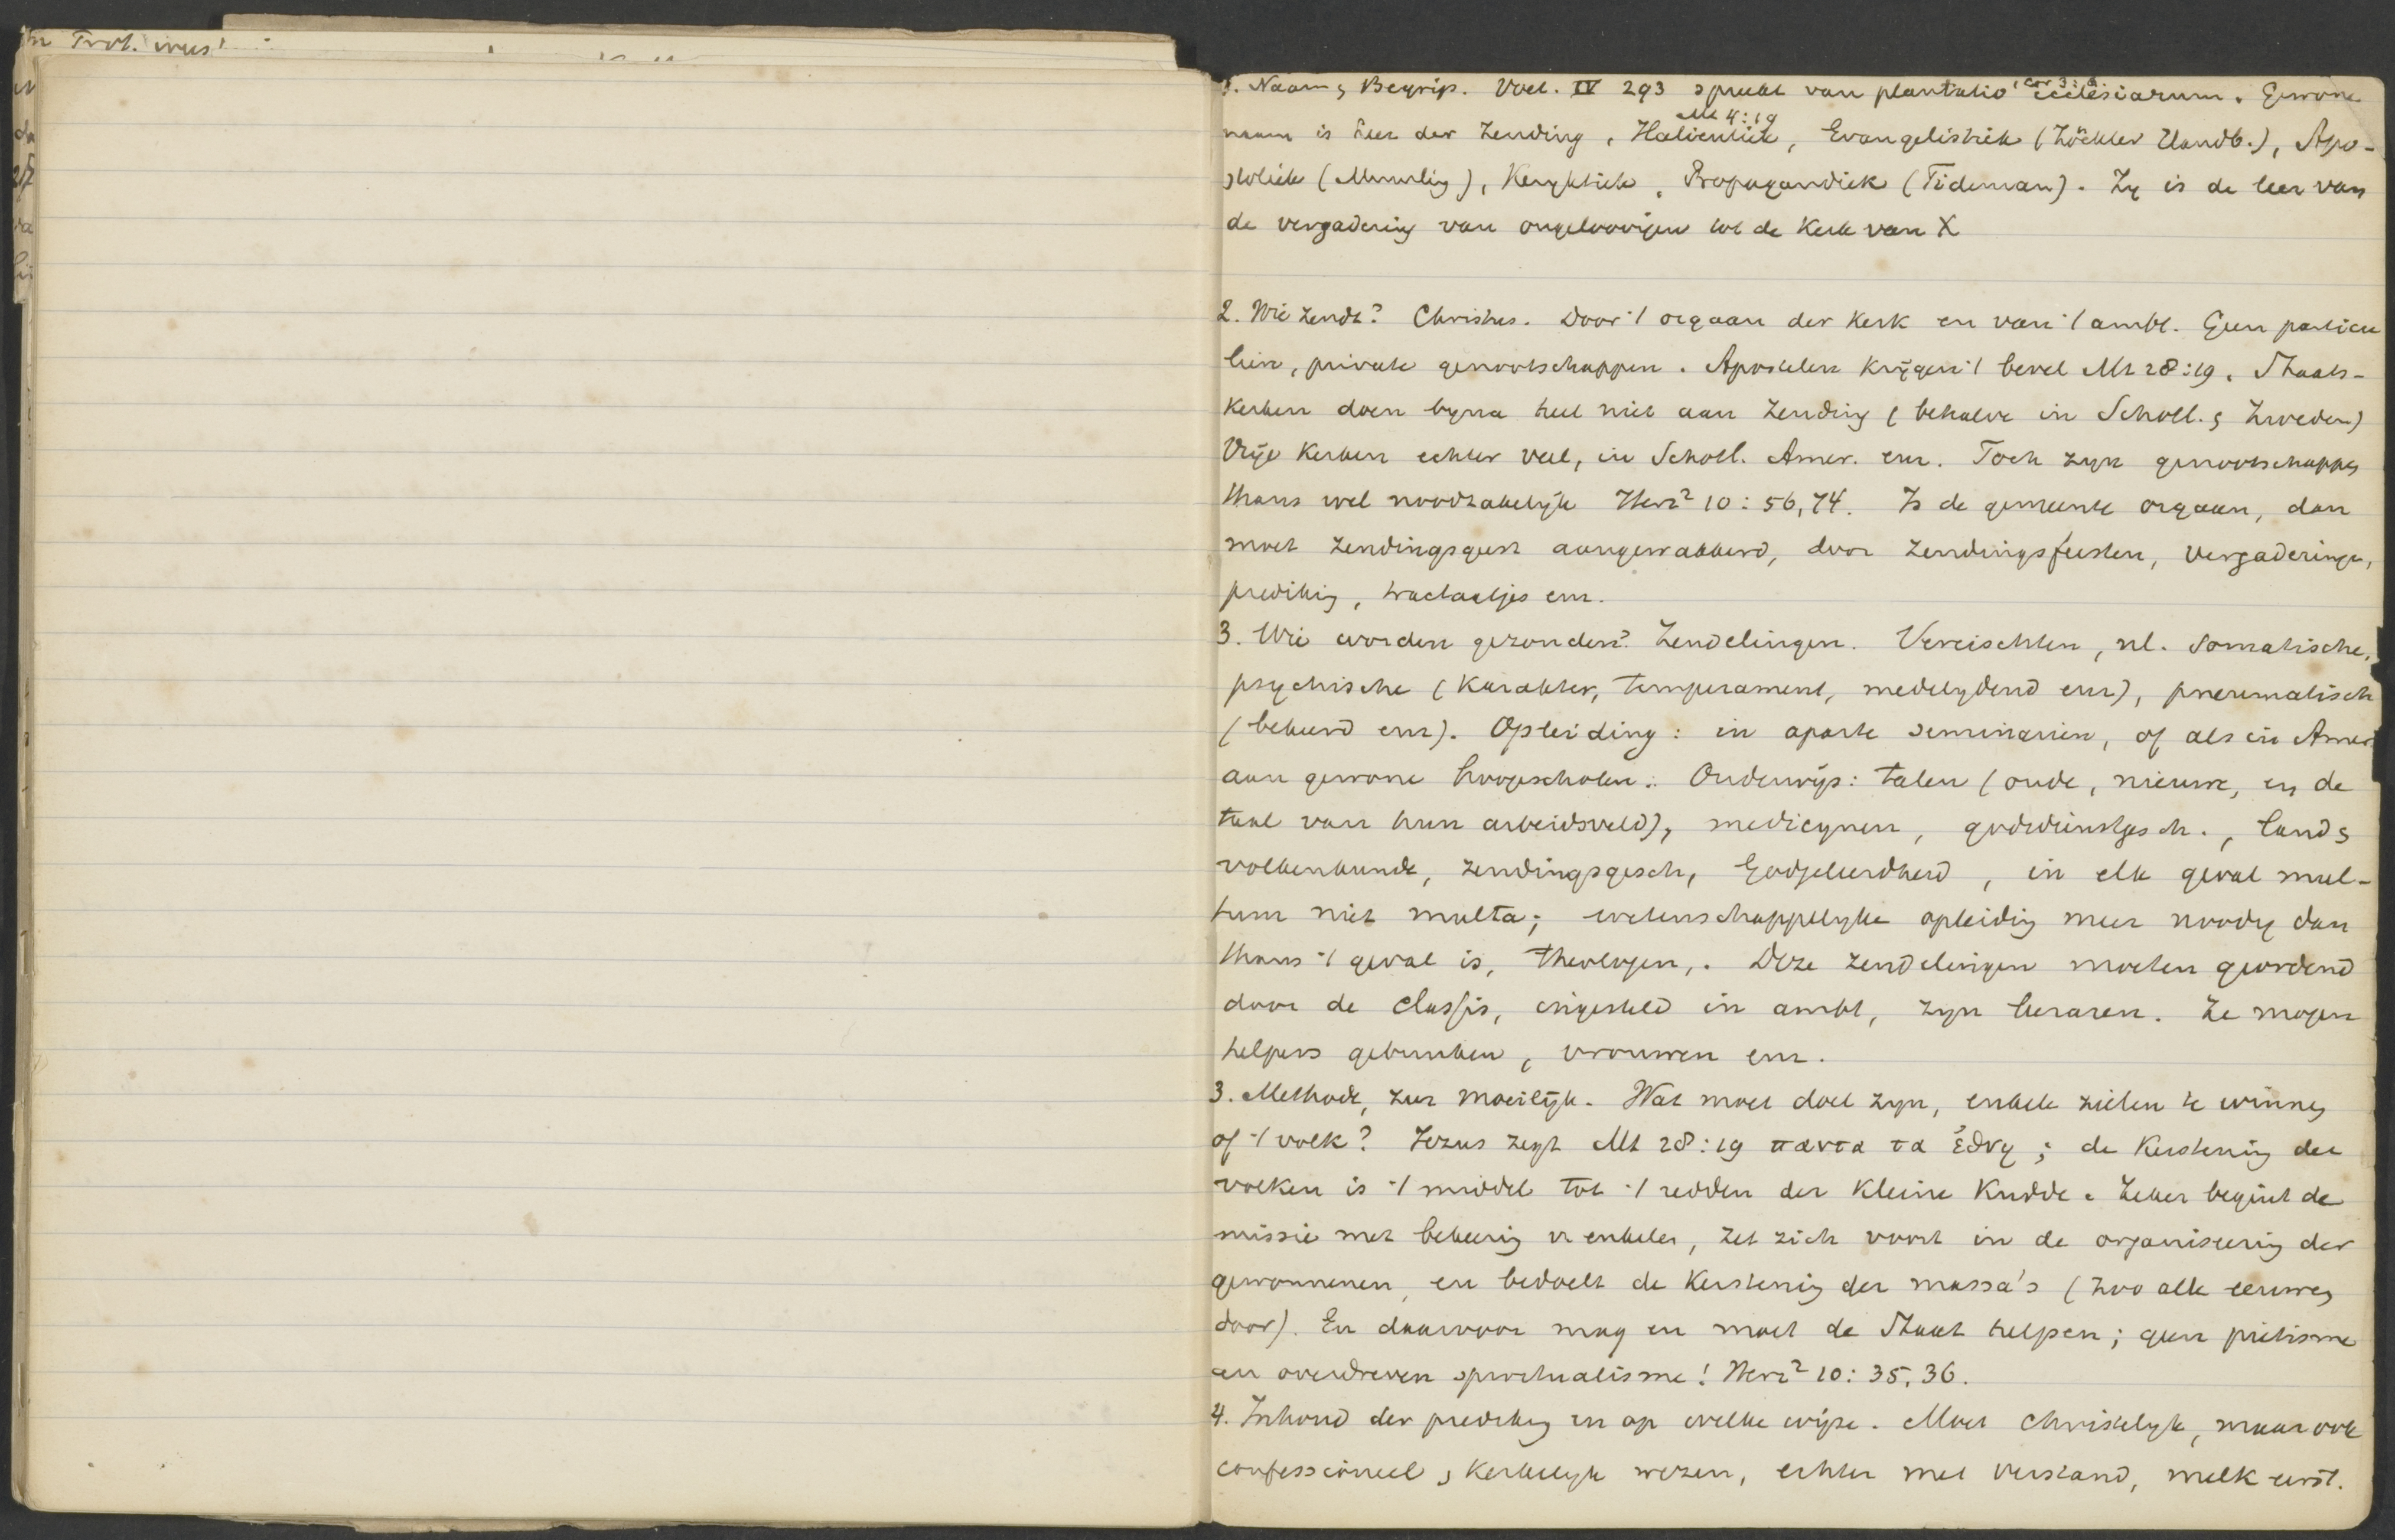 Prot. wus
1. Naam & Begrip. Voet. IV 293 spreekt van plantatio ecclesiarum. Gewone
1 Cor 3:6.
naam is leer der Zending, Halieutiek, Evangelistiek (Zöckler Handb.), Apo-
Mt 4:19
stoliek (Muurling), Keryktiek, Propagandiek (Tideman). Zij is de leer van
de vergadering van ongeloovigen tot de Kerk van X
2. Wie zendt? Christus. Door 't orgaan der Kerk en van 't ambt. Geen particu
liere, private genootschappen. Apostelen krijgen 't bevel Mt 28:19. Staats-
kerken doen bijna heel niet aan Zending (behalve in Schotl. & Zweden)
Vrije Kerken echter veel, in Schotl. Amer. enz. Toch zijn genootschappen
thans wel noodzakelijk Herz² 10:56,74. Is de gemeente orgaan, dan
moet zendingsgeest aangewakkerd, door zendingsfeesten, vergaderingen,
prediking, tractaatjes enz.
3. Wie worden gezonden? Zendelingen. Vereischten, nl. somatische,
psychische (Karakter, temperament, medelijdend enz), pneumatisch
(bekeerd enz). Opleiding: in aparte seminariën, of als in Amer.
aan gewone hoogescholen. Onderwijs: talen (oude, nieuwe, en de
taal van hun arbeidsveld), medicijnen, godsdienstgesch., land &
volkenkunde, zendingsgesch, Godgeleerdheid, in elk geval mul-
tum niet multa; wetenschappelijke opleiding meer noodig dan
thans 't geval is, theologen,. Deze zendelingen moeten geordend
door de classis, ingesteld in ambt, zijn leraren. Ze mogen
helpers gebruiken, vrouwen enz.
3. Methode, zeer moeilijk. Wat moet doel zijn, enkele zielen te winnen
of 't volk? Jezus zegt Mt 28:19 παντα τα ἐθνη; de Kerstening der
volken is 't middel tot 't redden der kleine Kudde. Zeker begint de
missie met bekeering v enkelen, zet zich voort in de organiseering der
gewonnenen, en bedoelt de Kerstening der massa's (zoo alle eeuwen
door). En daarvoor mag en moet de Staat helpen; geen pietisme
en overdreven spiritualisme! Herz² 10:35,36.
4. Inhoud der prediking en op welke wijze. Moet christelijk, maar ook
confessioneel, kerkelijk wezen, echter met verstand, melk eerst.